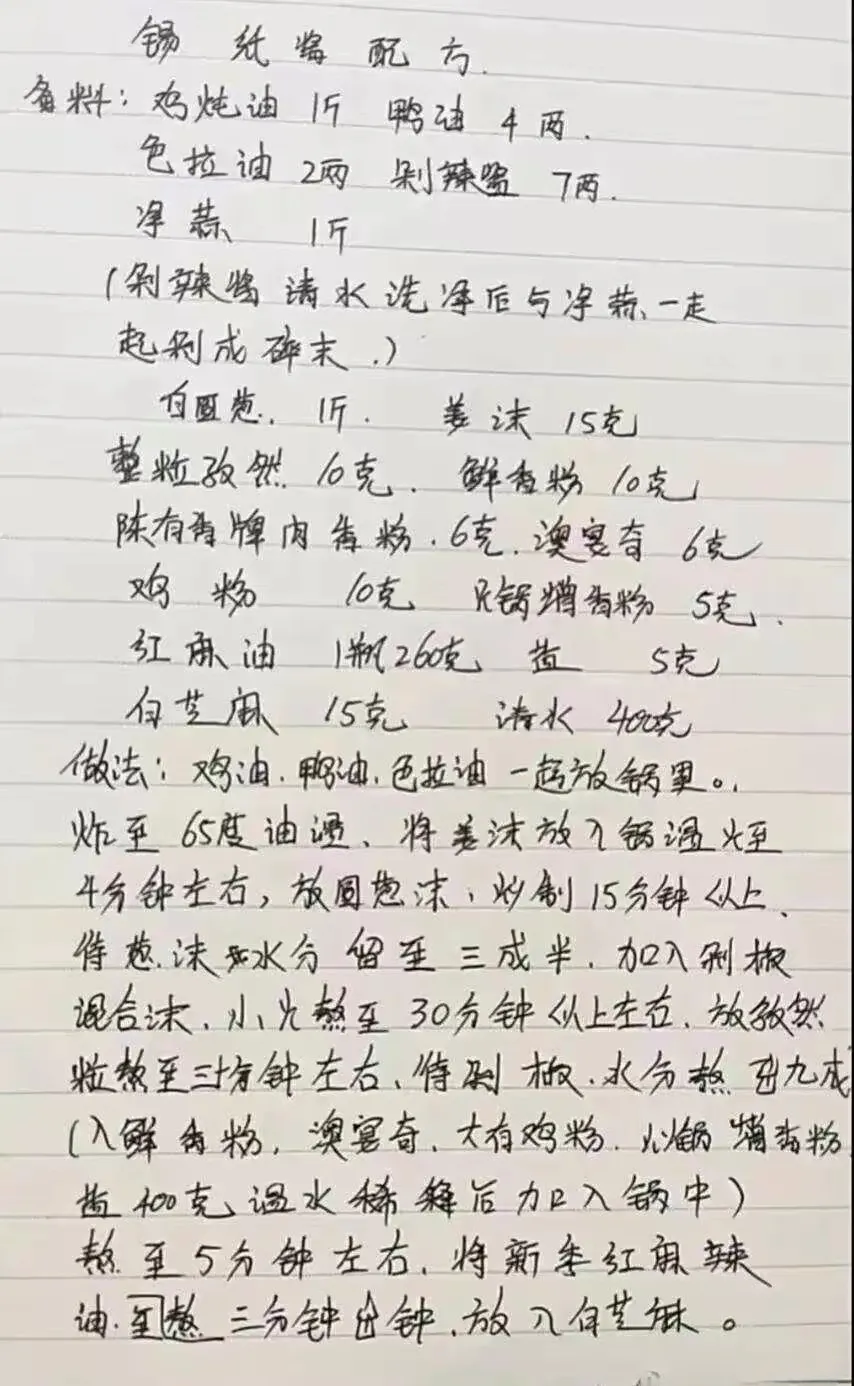 锡纸酱配方.
备料: 鸡炖油 1斤 鸭油 4两.
色拉油 2两 剁辣酱 7两.
净蒜 1斤
(剁辣酱清水洗净后与净蒜、一走
起剁成碎末.)
白圆葱. 1斤. 姜沫 15克
整粒孜然 10克. 鲜香粉 10克
陈有香牌肉香粉. 6克. 澳寞奇 6克
鸡粉 10克 火锅增香粉 5克.
红麻油 1瓶260克 盐 5克
白芝麻 15克 清水 400克
做法: 鸡油.鸭油.色拉油一起放锅里。.
炸至65度油温、将姜沫放入锅温火至
4分钟左右, 放圆葱沫, 炒制15分钟以上、
待葱.沫水分留至三成半. 加入剁椒
混合沫. 小火熬至30分钟以上左右. 放孜然
粒熬至三十分钟左右、待剁椒.水分熬至九成
(入鲜香粉, 澳寞奇. 大有鸡粉. 火锅增香粉
盐400克温水稀释后加入锅中)
熬至5分钟左右. 将新季红麻辣
油.至熬三分钟出钟.放入白芝麻。